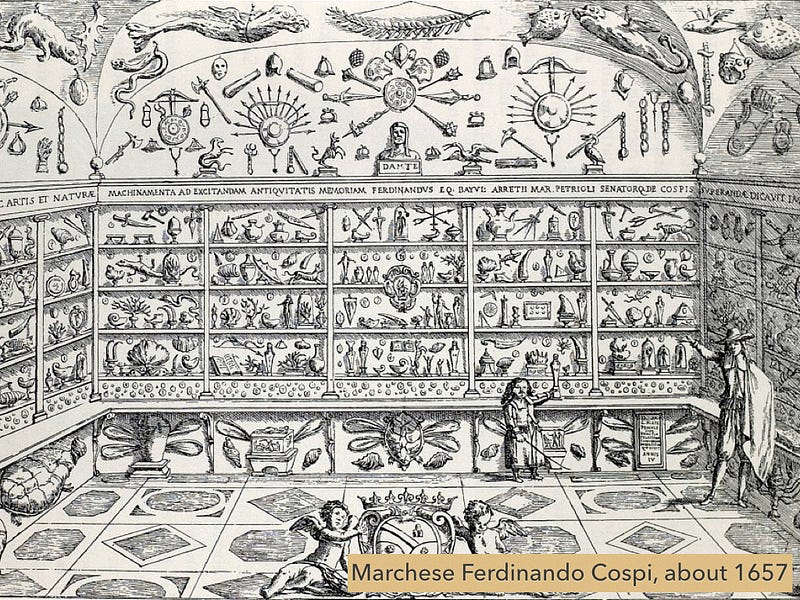 DANTE
C ARTIS ET NATURÆ MACHINAMENTA AD EXCITANDAM ANTIQVITATIS MEMORIAM FERDINANDVS EQ. BAYVI: ARRETII MAR. PETRIOLI SENATORQ. DE COSPIS SVPERANDÆ DICAVIT
Marchese Ferdinando Cospi, about 1657